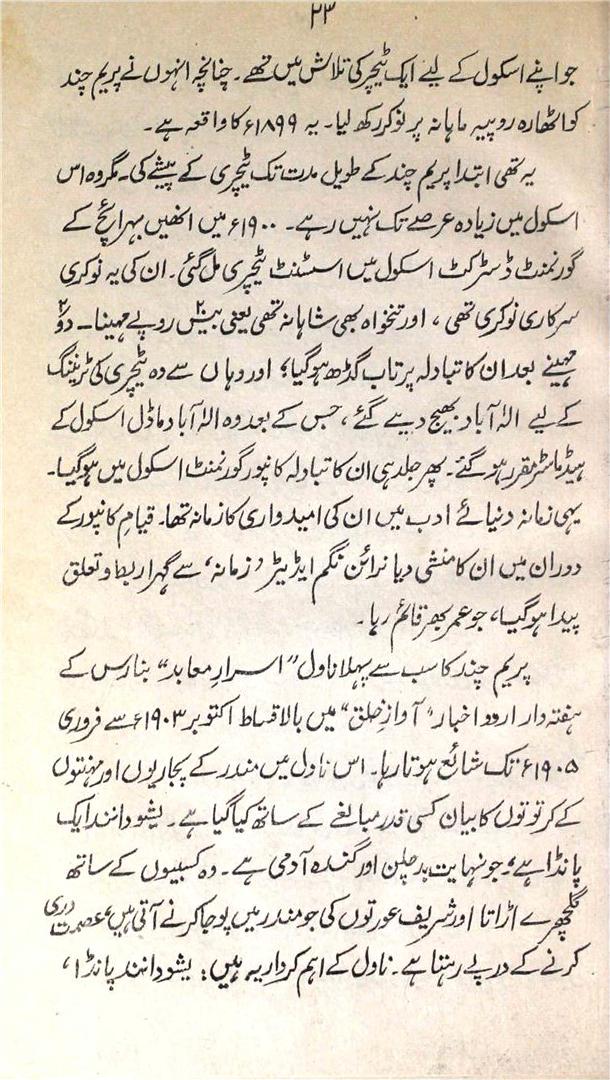 ۲۳
جو اپنے اسکول کے لیے ایک ٹیچر کی تلاش میں تھے۔ چنانچہ انہوں نے پریم چند
کو اٹھارہ روپیہ ماہانہ پر نوکر رکھ لیا۔ یہ ۱۸۹۹ء کا واقعہ ہے۔
یہ تھی ابتدا پریم چند کے طویل مدت تک ٹیچری کے پیشے کی۔ مگر وہ اس
اسکول میں زیادہ عرصے تک نہیں رہے۔ ۱۹۰۰ء میں انھیں بہرائچ کے
گورنمنٹ ڈسٹرکٹ اسکول میں اسسٹنٹ ٹیچری مل گئی۔ ان کی یہ نوکری
سرکاری نوکری تھی، اور تنخواہ بھی شاہانہ تھی یعنی بیس۲۰ روپے مہینا۔ دو۲
مہینے بعد ان کا تبادلہ پرتاب گڈھ ہوگیا؛ اور وہاں سے وہ ٹیچری کی ٹریننگ
کے لیے الہٰ آباد بھیج دیے گئے، جس کے بعد وہ الہٰ آباد ماڈل اسکول کے
ہیڈ ماسٹر مقرر ہو گئے۔ پھر جلد ہی ان کا تبادلہ کانپور گورنمنٹ اسکول میں ہوگیا۔
یہی زمانہ دنیائے ادب میں ان کی امیدواری کا زمانہ تھا۔ قیامِ کانپور کے
دوران میں ان کا منشی دیا نرائن نگم ایڈیٹر 'زمانہ' سے گہرا ربط و تعلق
پیدا ہوگیا، جو عمر بھر قائم رہا۔
پریم چند کا سب سے پہلا ناول "اسرارِ معابد" بنارس کے
ہفتہ دار اردو اخبار "آوازِ خلق" میں بالاقساط اکتوبر ۱۹۰۳ء سے فروری
۱۹۰۵ء تک شائع ہوتا رہا۔ اس ناول میں مندر کے پجاریوں اور مہنتوں
کے کرتوتوں کا بیان کسی قدر مبالغے کے ساتھ کیا گیا ہے۔ یشودانند ایک
پانڈا ہے، جو نہایت بدچلن اور گندہ آدمی ہے۔ وہ کسبیوں کے ساتھ
گلچھرے اڑاتا اور شریف عورتوں کی جو مندر میں پوجا کرنے آتی ہیں، عصمت دری
کرنے کے درپے رہتا ہے۔ ناول کے اہم کردار یہ ہیں: یشودانند پانڈا،